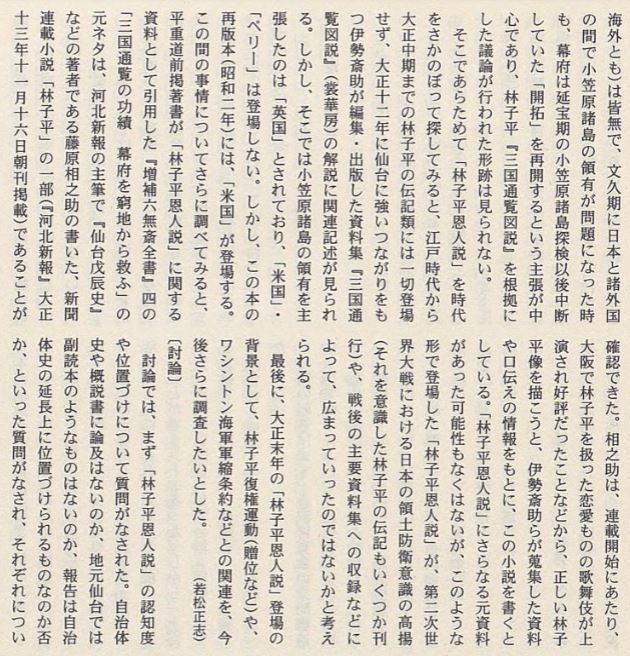 海外とも)は皆無で、文久期に日本と諸外国
の間で小笠原諸島の領有が問題になった時
も、幕府は延宝期の小笠原諸島探検以後中断
していた「開拓」を再開するという主張が中
心であり、林子平『三国通覧図説』を根拠に
した議論が行われた形跡は見られない。
そこであらためて「林子平恩人説」を時代
をさかのぼって探してみると、江戸時代から
大正中期までの林子平の伝記類には一切登場
せず、大正十二年に仙台に強いつながりをも
つ伊勢斎助が編集・出版した資料集『三国通
覧図説』(裳華房)の解説に関連記述が見られ
る。しかし、そこでは小笠原諸島の領有を主
張したのは「英国」とされており、「米国」・
「ペリー」は登場しない。しかし、この本の
再版本(昭和二年)には、「米国」が登場する。
この間の事情についてさらに調べてみると、
平重道前掲著書が「林子平恩人説」に関する
資料として引用した『増補六無斎全書』四の
「三国通覧の功績 幕府を窮地から救ふ」の
元ネタは、河北新報の主筆で『仙台戊辰史』
などの著者である藤原相之助の書いた、新聞
連載小説「林子平」の一部(『河北新報』大正
十三年十一月十六日朝刊掲載)であることが
確認できた。相之助は、連載開始にあたり、
大阪で林子平を扱った恋愛ものの歌舞伎が上
演され好評だったことなどから、正しい林子
平像を描こうと、伊勢斎助らが蒐集した資料
や口伝えの情報をもとに、この小説を書くと
している。「林子平恩人説」にさらなる元資料
があった可能性もなくはないが、このような
形で登場した「林子平恩人説」が、第二次世
界大戦における日本の領土防衛意識の高揚
(それを意識した林子平の伝記もいくつか刊
行)や、戦後の主要資料集への収録などに
よって、広まっていったのではないかと考え
られる。
最後に、大正末年の「林子平恩人説」登場の
背景として、林子平復権運動(贈位など)や、
ワシントン海軍軍縮条約などとの関連を、今
後さらに調査したいとした。 (若松正志)
〔討論〕
討論では、まず「林子平恩人説」の認知度
や位置づけについて質問がなされた。自治体
史や概説書に論及はないのか、地元仙台では
副読本のようなものはないのか、報告は自治
体史の延長上に位置づけられるものなのか否
か、といった質問がなされ、それぞれについ